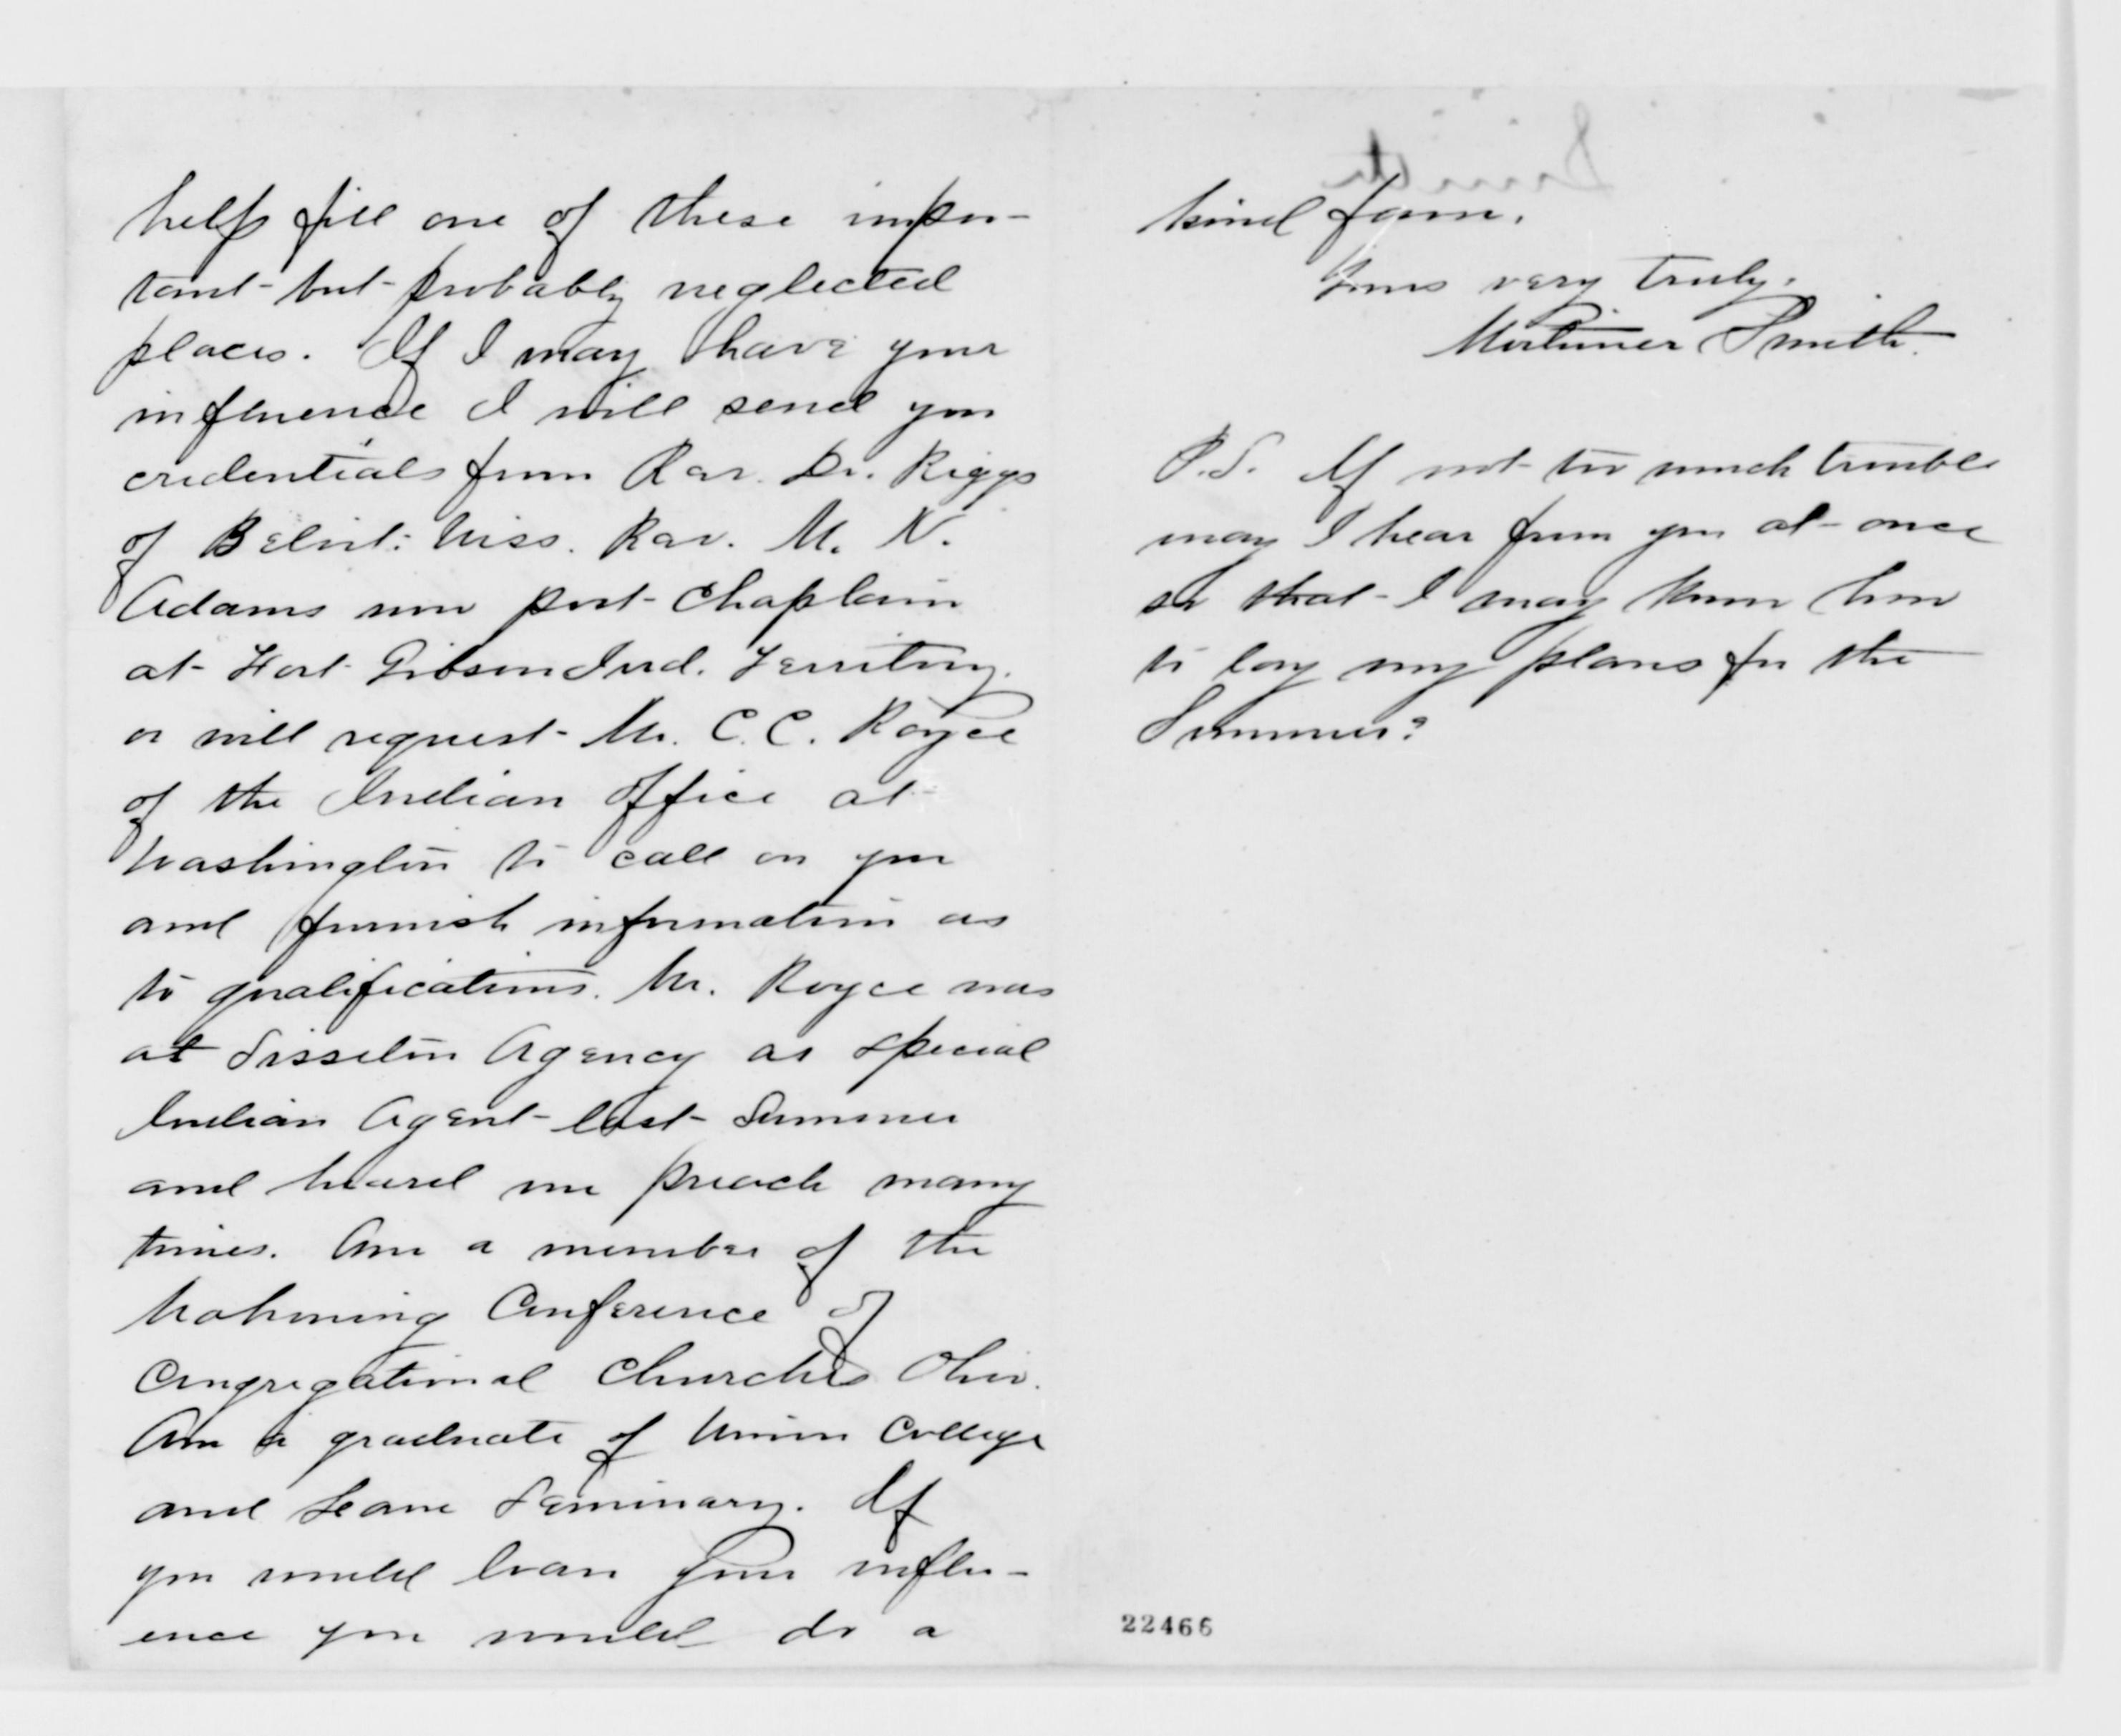 help fill one of these impor-
tant but probably neglected
places. If I may have your
influence I will send you
credentials from Rev. Dr. Riggs
of Beloit: Wiss. Rev. M. N.
Adams now post Chaplain
at Fort Gibson Ind. Territory.
or will request Mr. C. C. Royce
of the Indian Office at
Washington to call on you
and furnish information as
to qualifications. Mr. Royce was
at Sisseton Agency as special
Indian Agent last Summer
and heard me preach many
times. Am a member of the
Mahoning Conference of
Congregational Churches Ohio.
Am a graduate of Union College
and Lane Seminary. If
you would loan your influ-
ence you would do a
Smith
kind favor.
Yours very truly.
Mortimer Smith.
P.S. If not too much trouble
may I hear from you at once
so that I may know how
to lay my plans for the
Summer?
22466